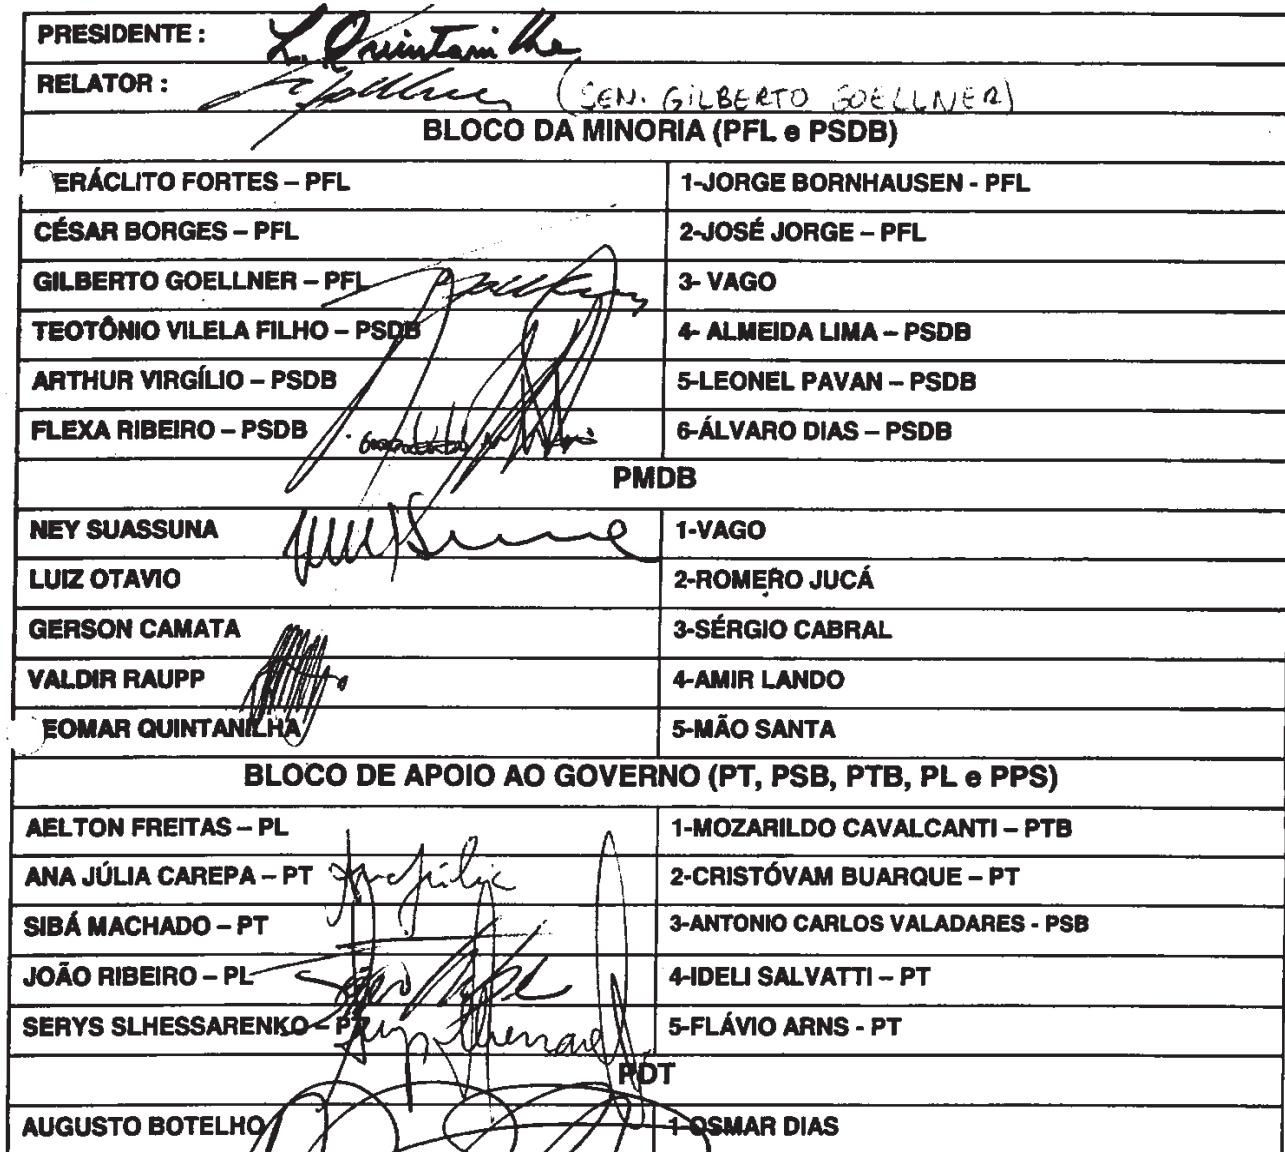 PRESIDENTE : L. Quintanilha
RELATOR : (SEN. GILBERTO GOELLNER)
BLOCO DA MINORIA (PFL e PSDB)
ERÁCLITO FORTES – PFL 1-JORGE BORNHAUSEN - PFL
CÉSAR BORGES – PFL 2-JOSÉ JORGE – PFL
GILBERTO GOELLNER – PFL 3- VAGO
TEOTÔNIO VILELA FILHO – PSDB 4- ALMEIDA LIMA – PSDB
ARTHUR VIRGÍLIO – PSDB 5-LEONEL PAVAN – PSDB
FLEXA RIBEIRO – PSDB 6-ÁLVARO DIAS – PSDB
PMDB
NEY SUASSUNA 1-VAGO
LUIZ OTAVIO 2-ROMERO JUCÁ
GERSON CAMATA 3-SÉRGIO CABRAL
VALDIR RAUPP 4-AMIR LANDO
EOMAR QUINTANILHA 5-MÃO SANTA
BLOCO DE APOIO AO GOVERNO (PT, PSB, PTB, PL e PPS)
AELTON FREITAS – PL 1-MOZARILDO CAVALCANTI – PTB
ANA JÚLIA CAREPA – PT Ana Júlia 2-CRISTÓVAM BUARQUE – PT
SIBÁ MACHADO – PT 3-ANTONIO CARLOS VALADARES - PSB
JOÃO RIBEIRO – PL 4-IDELI SALVATTI – PT
SERYS SLHESSARENKO – PT 5-FLÁVIO ARNS - PT
PDT
AUGUSTO BOTELHO 1-OSMAR DIAS